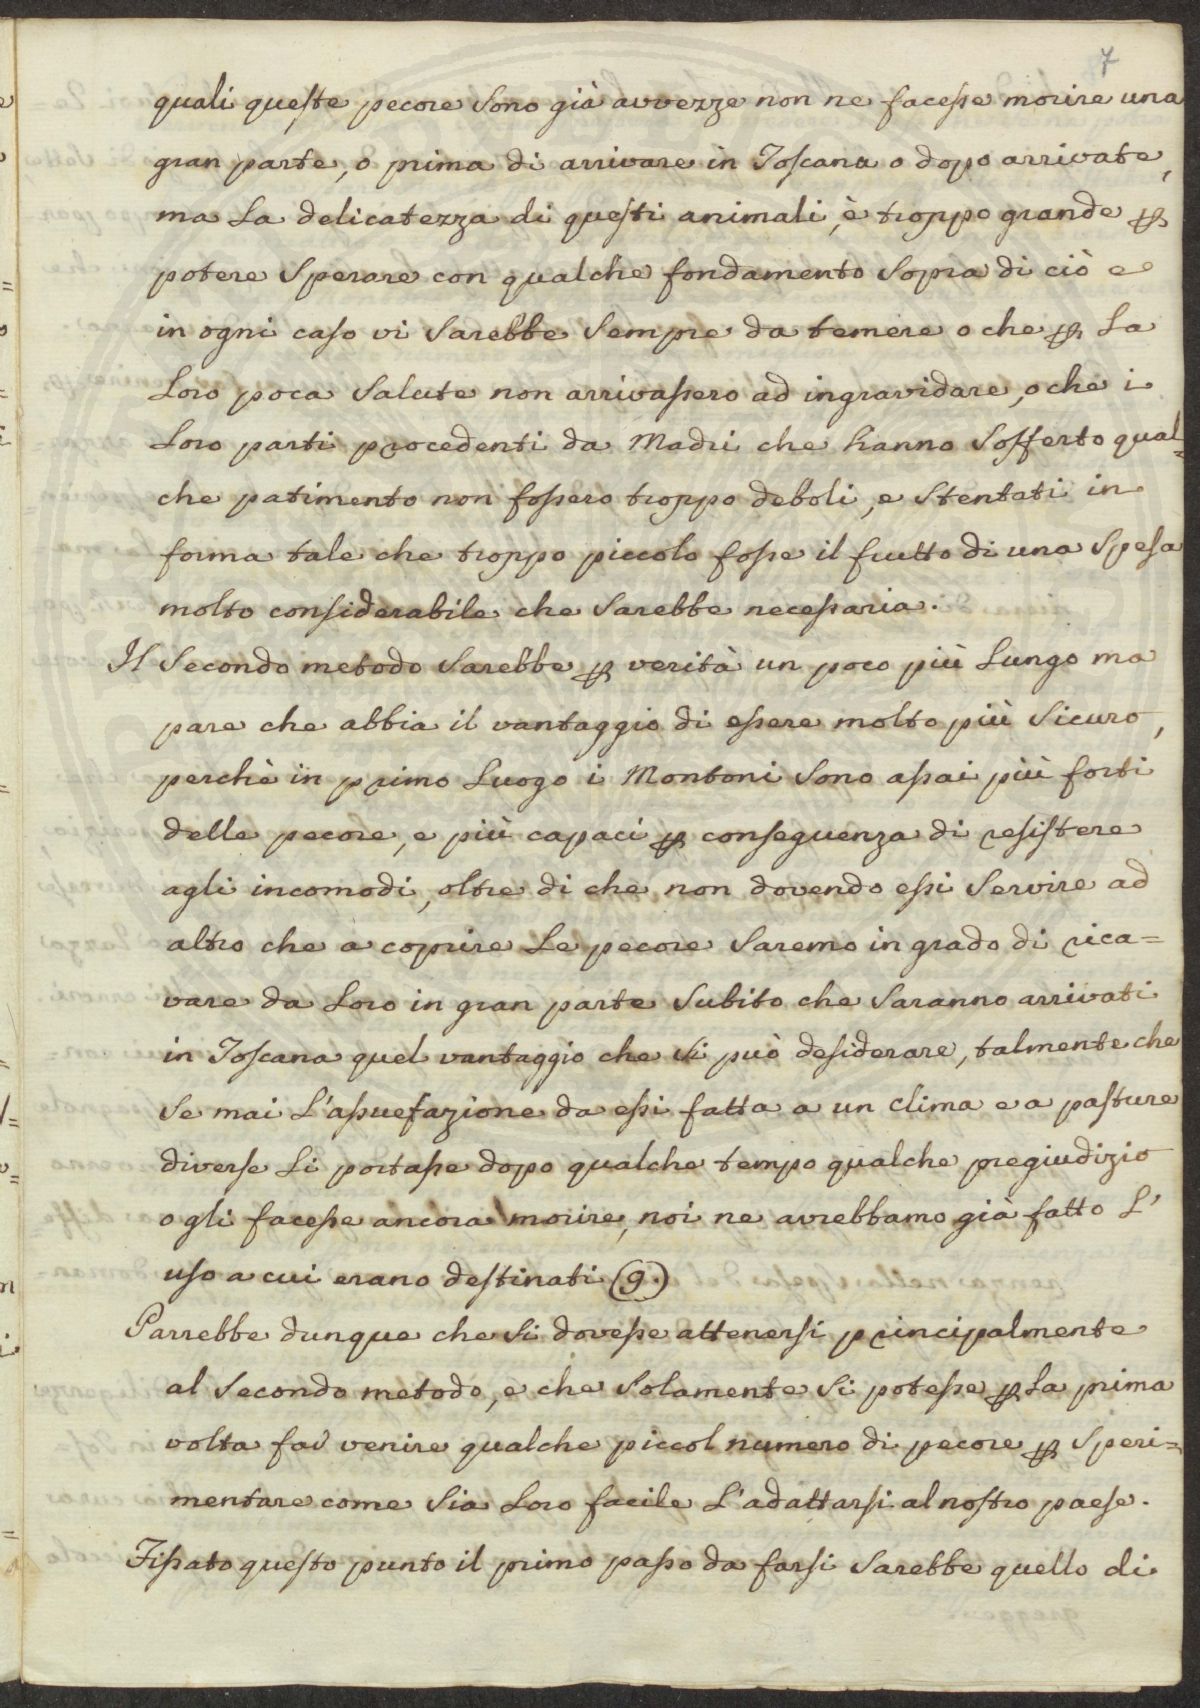 7
quali queste pecore sono già avvezze non ne facesse morire una
gran parte, o prima di arrivare in Toscana o dopo arrivate,
ma la delicatezza di questi animali, è troppo grande ꝑ
potere sperare con qualche fondamento sopra di ciò e
in ogni caso vi sarebbe sempre da temere o che ꝑ la
loro poca salute non arrivassero ad ingravidare, o che i
loro parti procedenti da Madri che hanno sofferto qual=
che patimento non fossero troppo deboli, e stentati in
forma tale che troppo piccolo fosse il frutto di una spesa
molto considerabile che sarebbe necessaria.
Il secondo metodo sarebbe ꝑ verità un poco più lungo ma
pare che abbia il vantaggio di essere molto più sicuro,
perchè in primo luogo i Montoni sono assai più forti
delle pecore, e più capaci ꝑ conseguenza di resistere
agli incomodi, oltre di che non dovendo essi servire ad
altro che a coprire le pecore saremo in grado di rica=
vare da loro in gran parte subito che saranno arrivati
in Toscana quel vantaggio che si può desiderare, talmente che
se mai l'assuefazione da essi fatta a un clima e a pasture
diverse li portasse dopo qualche tempo qualche pregiudizio
o gli facesse ancora morire, noi ne avrebbamo già fatto l'
uso a cui erano destinati (9.)
Parrebbe dunque che si dovesse attenersi principalmente
al secondo metodo, e che solamente si potesse ꝑ la prima
volta far venire qualche piccol numero di pecore ꝑ speri=
mentare come sia loro facile l'adattarsi al nostro paese.
Fissato questo punto il primo passo da farsi sarebbe quello di